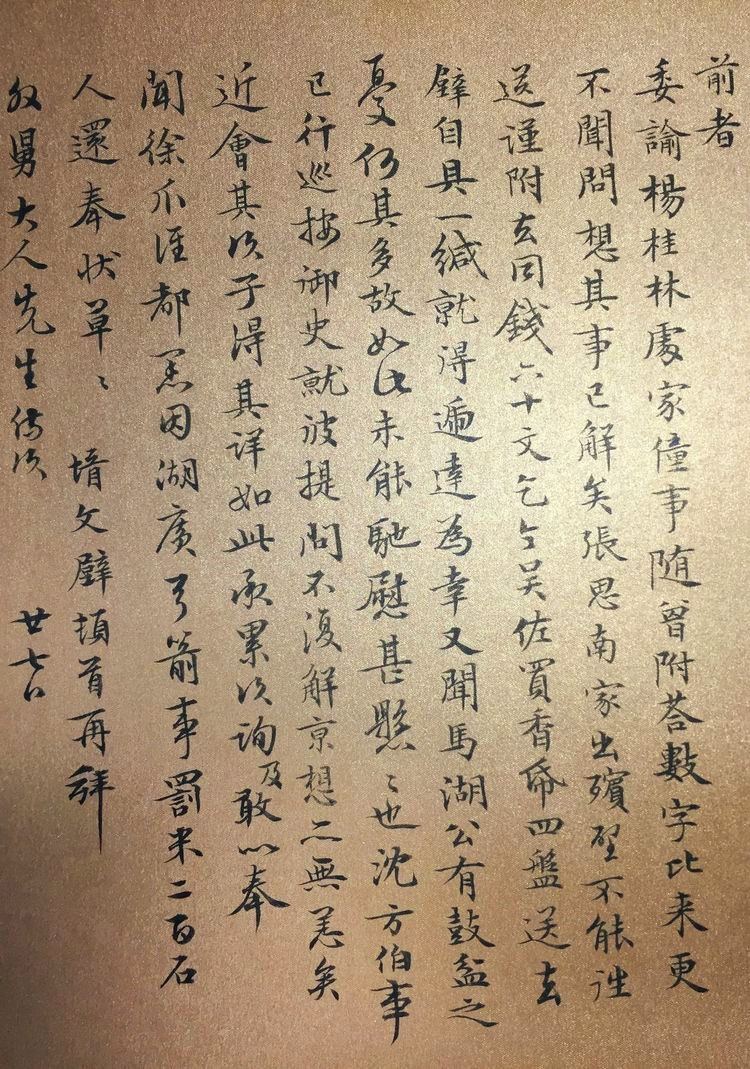 前者
委諭楊桂林處家僮事随曾附荅數字比来更
不聞問想其事已解矣張思南家出殯壁不能往
送謹附去同錢六十文乞令吴佐買香帋四盤送去
璧自具一緘就得遞達為幸又聞馬湖公有鼓盆之
憂何其多故如此未能馳慰甚懸〻也沈方伯事
已行巡按御史就彼提問不復解京想亦無恙矣
近會其次子得其詳如此承累次詢及敢以奉
聞徐爪涯都恙因湖廣弓箭事罰米二百石
人還奉状草〻 壻文璧頓首再拜
外舅大人先生侍次 廿七日